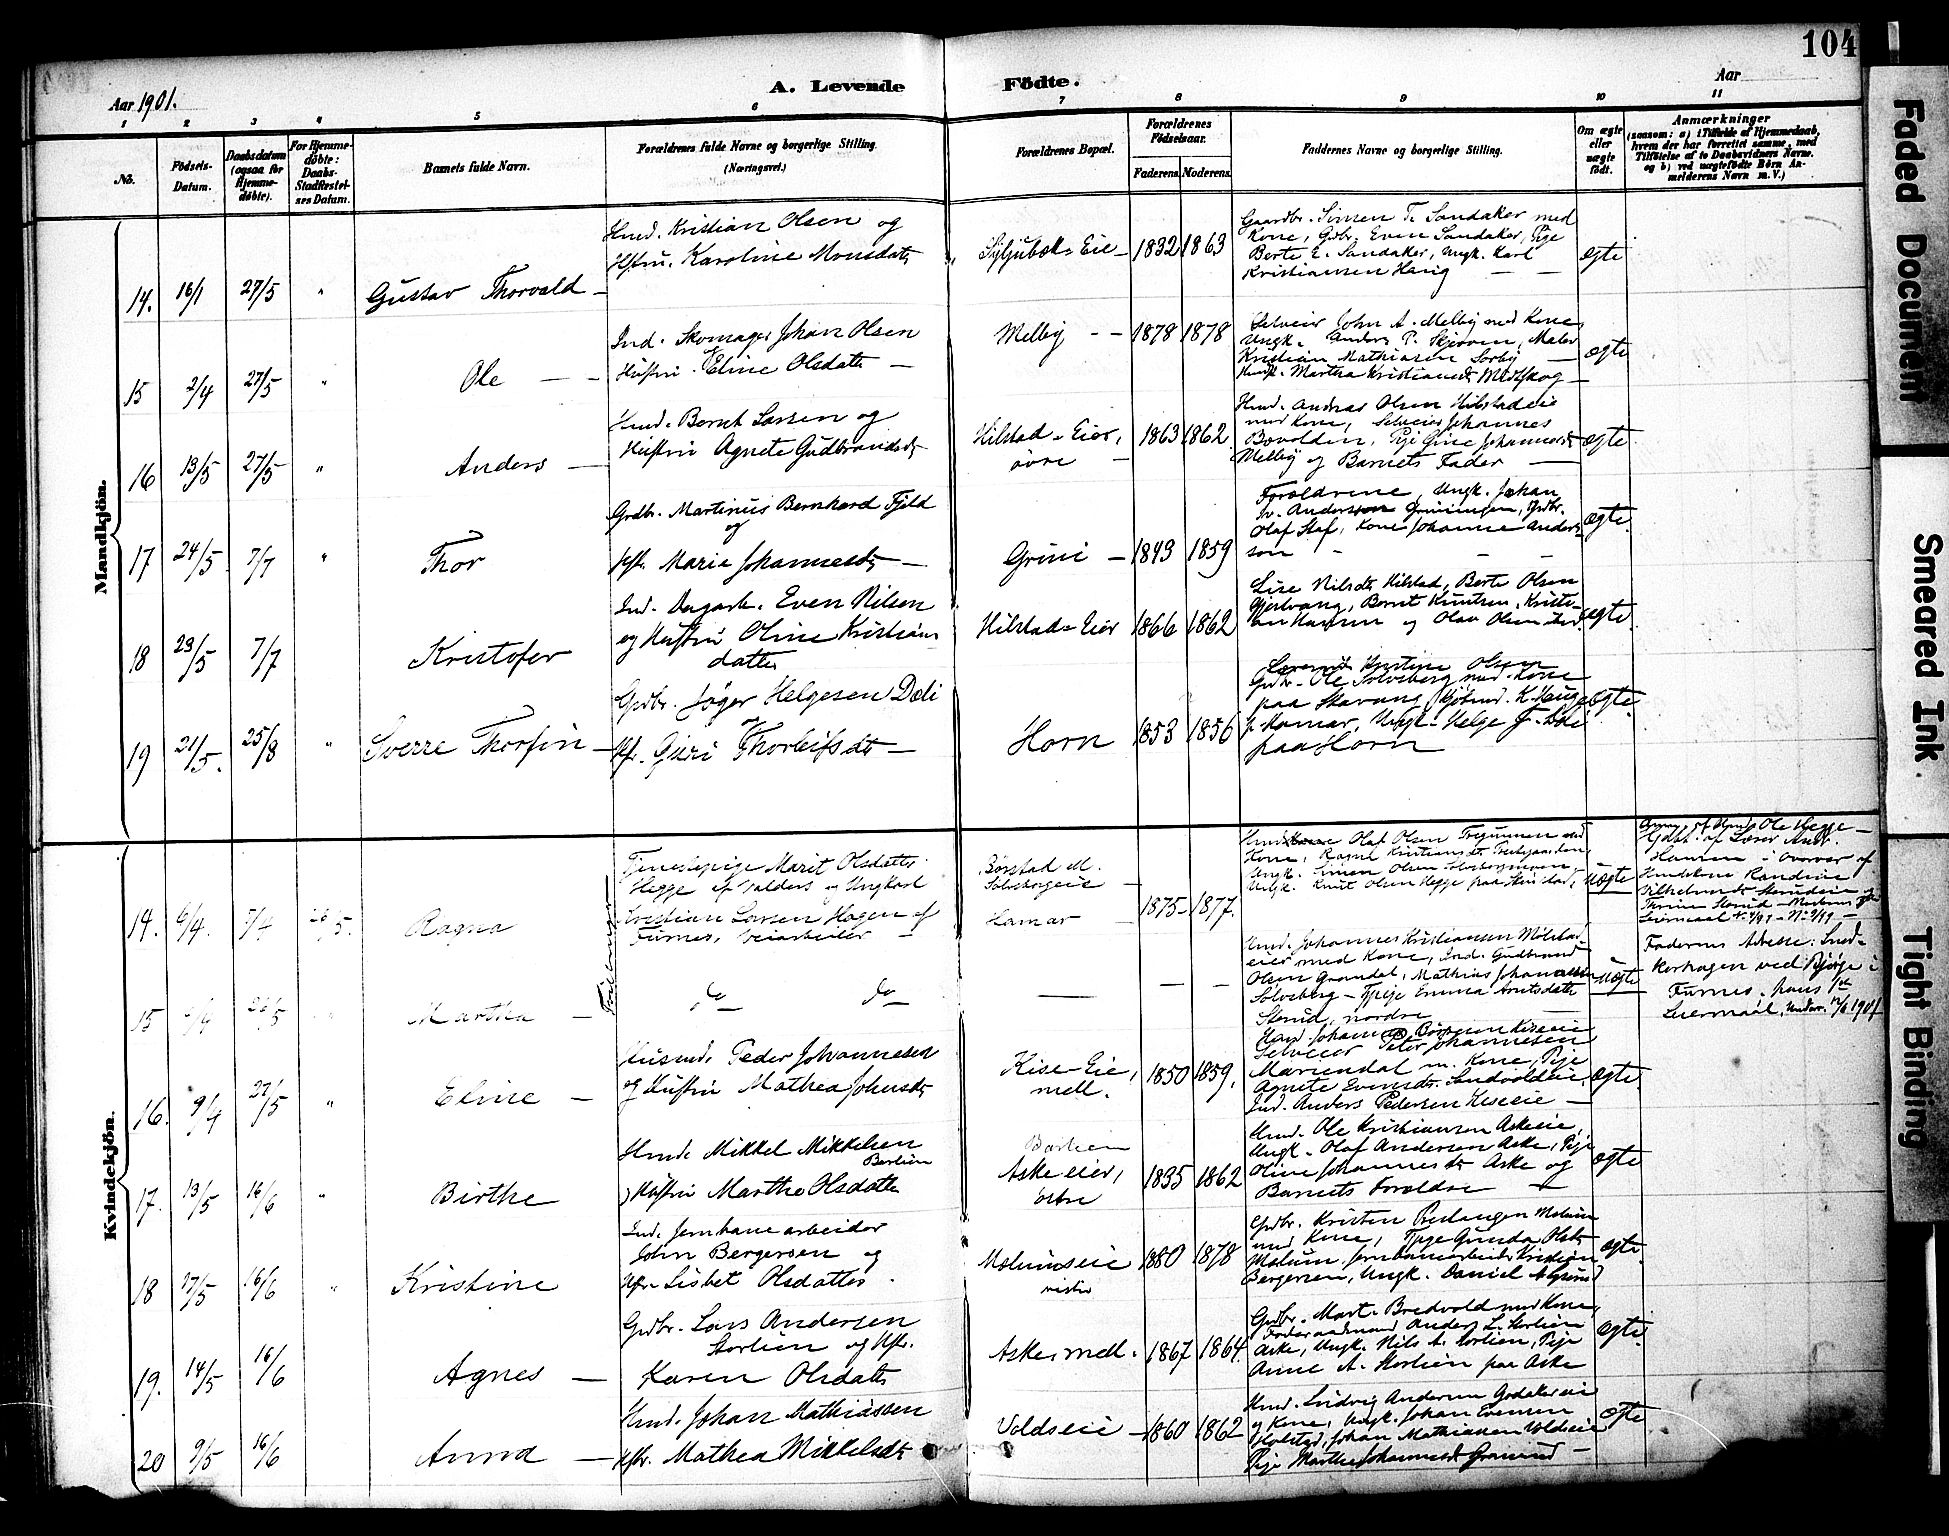 104
Aar 1901.
A. Levende Födte.
Aar
1 2 3 4 5 6 7 8 9 10 11
No.
Födsels-
Datum.
Daabsdatum
(ogsaa for
Hjemme-
døbte).
For Hjemme-
døbte:
Daabs-
Stadfæstel-
ses Datum.
Barnets fulde Navn.
Forældrenes fulde Navne og borgerlige Stilling.
(Næringsvei.)
Forældrenes Bopæl.
Forældrenes
Födselsaar.
Faderens. Moderens.
Faddernes Navne og borgerlige Stilling.
Om ægte
eller
uægte
født.
Anmærkninger
(saasom: a) i Tilfælde af Hjemmedaab,
hvem der har forrettet samme, med
Tilføielse af to Daabsvidners Navne,
og b) ved uægtefødte Börn An-
melderens Navn m. V.)
Mandkjön.
14. 16/1 27/5 " Gustav Thorvald —
Hmd. Kristian Olsen og
Hstru. Karoline Monsdatr
Syljubæk-Eie — 1832 1863
Gaardbr. Simen T. Sandaker med
Kone, Grdbr. Even Sandaker, Pige
Berte E. Sandaker, Ungk. Karl
Kristiansen Haug — —
ægte
15 2/4 27/5 " Ole — —
Ind. Skomager Johan Olsen
Hustru. Eline Olsdatr —
Melby — — 1878 1878
Selveier John A. Melby med Kone,
Ungk. Anders P. Skjerven, Maler
Kristian Mathiasen Sorby —
Martha Kristiansdr
ægte
16 13/5 27/5 " Anders —
Hmd. Bernt Larsen og
Hustru Agnete Gudbrandsdr
Hilstad-Eier,
øvre — 1863 1862
Hmd. Andreas Olsen Hilstadeie
med Kone, Selveier Johannes
Pige Gine Johannesdr
Melby og Barnets Fader —
ægte
17 24/5 7/7 " Thor
Grdbr. Martinus Bernhard Fjeld
og
Hstr. Marie Johannesdr —
Grini — 1843 1859
Forældrene, Ungk. Johan
Andersson Gruningen, Grdbr.
Olaf Staf, Kone Johanne Anders-
son — — —
ægte.
18 23/5 7/7 Kristofer
Ind. Dagarb. Even Nilsen
og Hustru Oline Kristians
datter
Hilstad-Eier 1866 1862
Lise Nilsdr Hilstad, Berte Olsen
Gjestvang, Bernt Knutsen, Kristi-
an Hansen og Olav Olsen
ægte.
19 21/5. 25/8 " Sverre Thorfin —
Grdbr. Jøger Helgesen Dæli
Hstr. Guri Thorleifsdr —
Horn 1853 1856
Kristine Olsen
Grdbr. Ole Solvsberg med Kone
paa Stavang, K. Hauge
p. Hamar, Ungk. Helge J. Dæli
paa Horn
ægte.
Kvindekjön.
14. 6/4. 7/4 26/5. Ragna
Tjenestepige Marit Olsdatter
Hegge af Valders og Ungkarl
Kristian Larsen Hagen af
Furnes, Veiarbeider —
Børstad M.
Solvsbergeie —
Hamar — 1875 — 1877.
Olaf Olsen
Kone, Ragne Kristiansdr
Ungk. Simen Olsen
Ungk. Knut Olsen Hegge paa
uægte
Ole Hegge —
Gdbt. af Lærer Andr.
Hansen i Overvær af
Husekone Randine
Vilhelmsdr Sterudeie og
15 6/4 26/5 Martha —
do do
— — —
Hmd. Johannes Kristiansen Mölstad-
eier med Kone, Ind. Gudbrand
Olsen Grandal, Mathias Johannessen
Solvsberg — Tpige Emma Arntsdatr
Sterud, nordre
uægte
Faderens Adresse: Sned-
kerhagen ved Bjørge i
Furnes.
16. 9/4 27/5 " Eline —
Husmd. Peder Johannesen
og Hustru Mathea Johnsdr
Kise-Eie,
mell. 1850 1859.
Selveier Peter Johannesen
Mariendal m. Kone, Pige
Agnete Evensdr. Sandvoldeie,
Ind. Anders Pedersen Kiseeie —
ægte
17. 13/5 16/6 " Birthe
Hmd. Mikkel Mikkelsen
Bærlien
og Hustru Marthe Olsdatter
Bærlien
Aske eier,
østre 1835 1862
Hmd. Ole Kristiansen Askeeie,
Ungk. Olaf Andersen Aske, Pige
Oline Johannesdr Aske og
Barnets Forældre —
ægte
18 27/5 16/6 " Kristine
Ind. Jernbanearbeider
John Bergersen og
Hstr. Lisbet Olsdatter.
Molunseie
vestre 1880 1878
Grdbr. Kristen Prestangen Molun
med Kone, Tpige Gunda Olsdr
Molun, Jernbanearbeider Kristian
Bergersen, Ungk. Daniel
ægte.
19. 14/5 16/6 Agnes —
Grdbr. Lars Andersen
Storlien og Hstr.
Karen Olsdatter
Aske, mell. 1867 1864.
Grdbr. Mart. Bredvold med Kone,
Foderaadsmand Anders L. Storlien
Aske, Ungk. Nils A. Storlien, Pige
Anne A. Storlien paa Aske
ægte.
20 9/5 16/6 Anna —
Hmd. Johan Mathiassen
Hstr. Mathea Mikkelsdr
Voldseie — 1860 1862
Hmd. Ludvig Andersen Godakereie
og Kone, Ungk. Johan Evensen
Holstad, Johan Mathiassen Voldseie
Pige Marthe Johannesdr —
ægte
Faded Document
Smeared Ink
Tight Binding